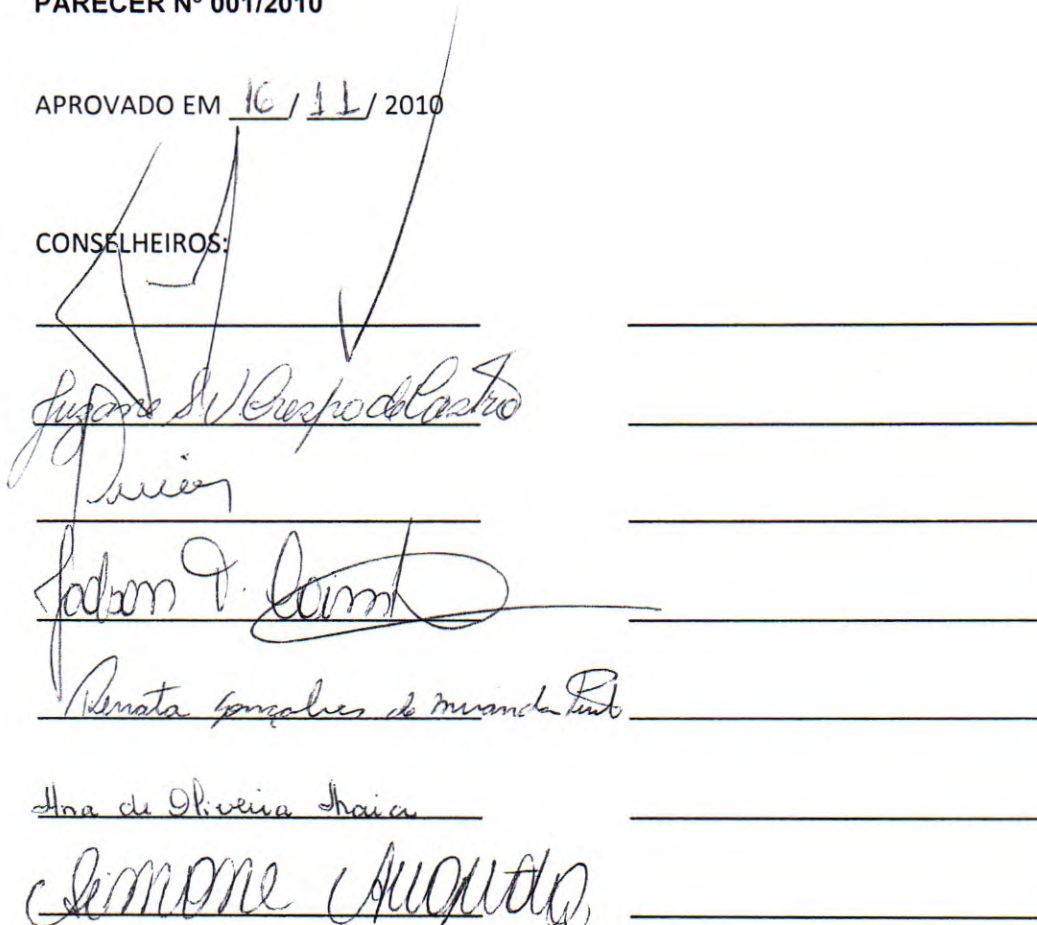 PARECER Nº 001/2010
APROVADO EM 16 / 11 / 2010
CONSELHEIROS:
Suzane S V Crespo de Castro
Jadson
Renata Gonçalves de Miranda Pinto
Ana de Oliveira
Simone Augusto